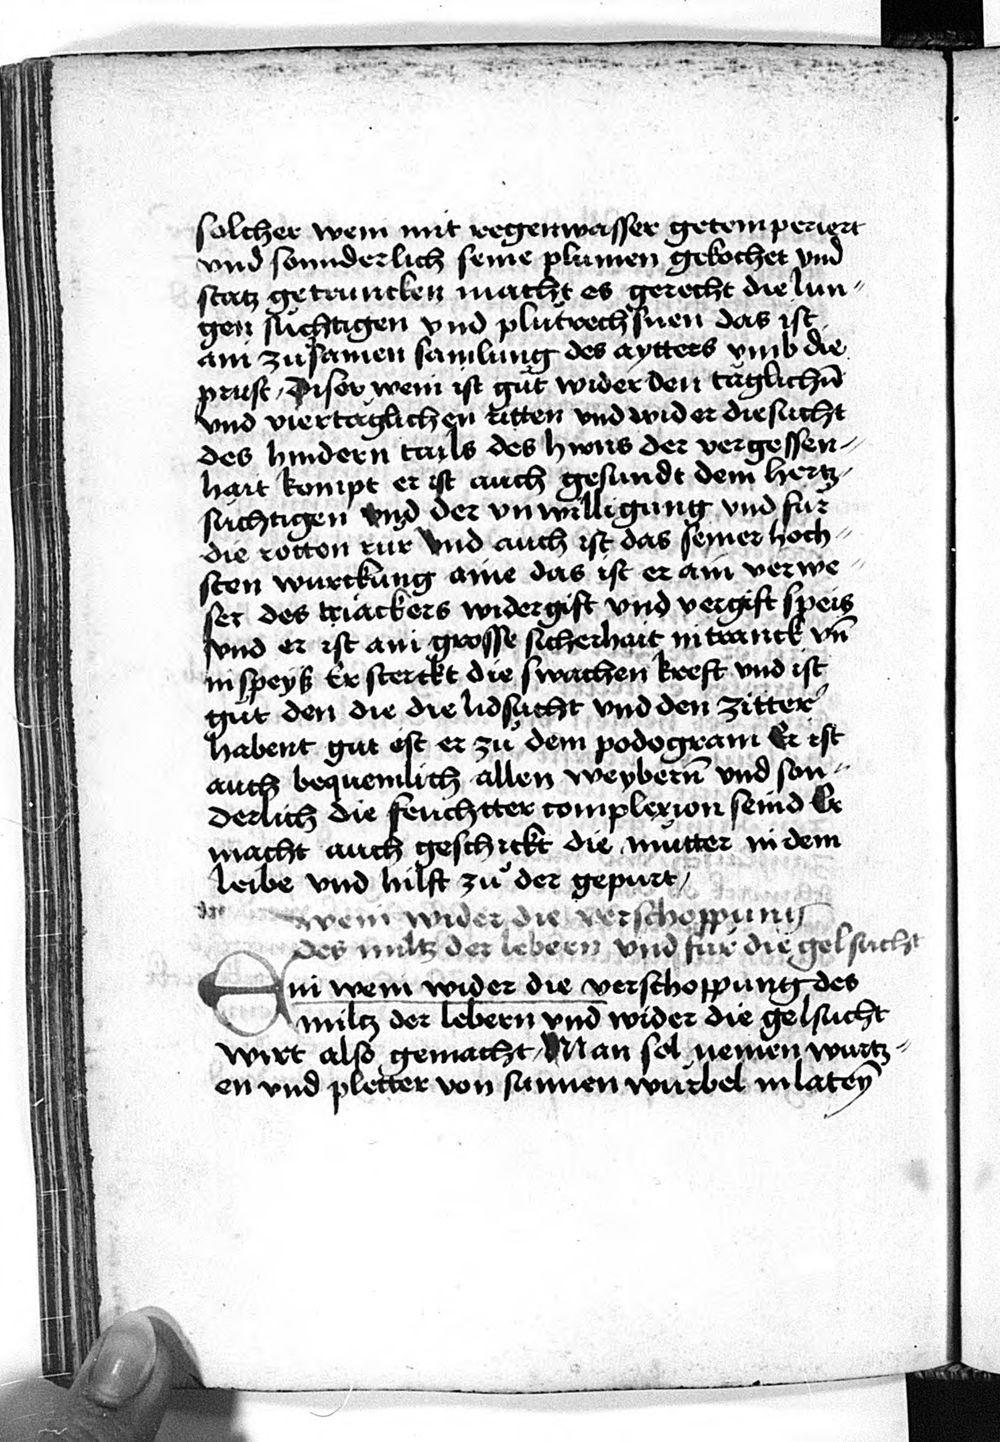 solcher wein mit regenwasser getemperiert
vnd sunnderlich seine plumen gekochet vnd
stätz getruncken macht es gerecht die lun-
gen süchtigen vnd plutrechsnen das ist
ain zusamen samlung des aytters vmb die
prust / Diser wein ist gut wider den täglichn̄
vnd viertäglichen ritten vnd wider die sucht
des hindern tails des hirns der vergessen-
hait kompt er ist auch gesundt dem hertz-
süchtigen vnd der vnwilligung vnd für
die rotten rür vnd auch ist das seiner höch-
sten würckung aine das ist er ain verwe-
ser des triackers widergift vnd vergift speis
vnd er ist ain grosse sicherhait in tranck vn̄
in speyß Er sterckt die swachen kreft vnd ist
gůt den die die lidsucht vnd den zitter
habent gut ist er zů dem podogram Er ist
auch bequemlich allen weybern̄ vnd son-
derlich die feuchtter complexion seind Er
macht auch geschickt die můtter in dem
leibe vnd hilft zů der gepurt /
wein wider die verschoppung
des miltz der lebern vnd für die gelsucht
Ain wein wider die verschoppung des
miltz der lebern vnd wider die gelsucht
wirt also gemacht / Man sol nemen wurtz-
en vnd pletter von sunnen würbel in lateÿ